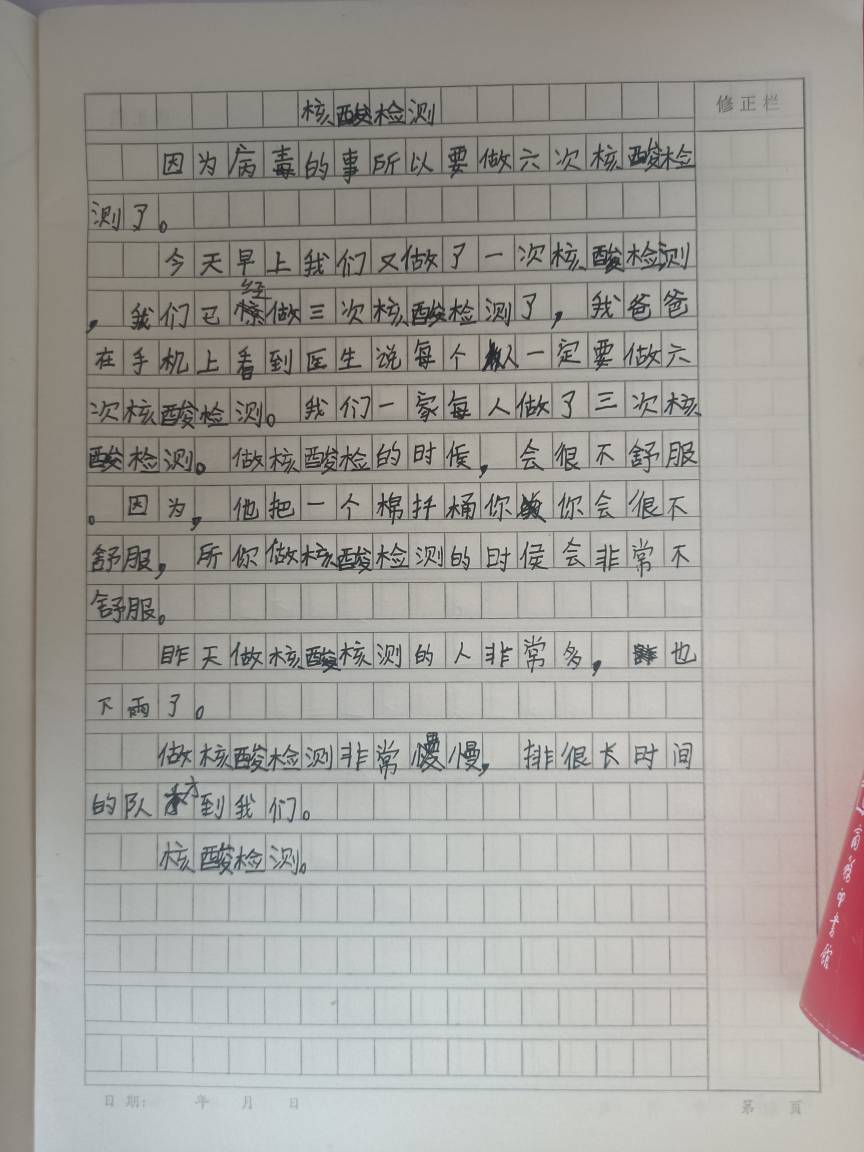 核酸检测
修正栏
因为病毒的事所以要做六次核酸检
测了。
今天早上我们又做了一次核酸检测
，我们已经做三次核酸检测了，我爸爸
在手机上看到医生说每个人一定要做六
次核酸检测。我们一家每人做了三次核
酸检测。做核酸检的时候，会很不舒服
。因为，他把一个棉扦桶你你会很不
舒服，所你做核酸检测的时侯会非常不
舒服。
昨天做核酸核测的人非常多，也
下雨了。
做核酸检测非常慢慢，排很长时间
的队才到我们。
核酸检测。
日期： 年 月 日
第 页
商务印书馆